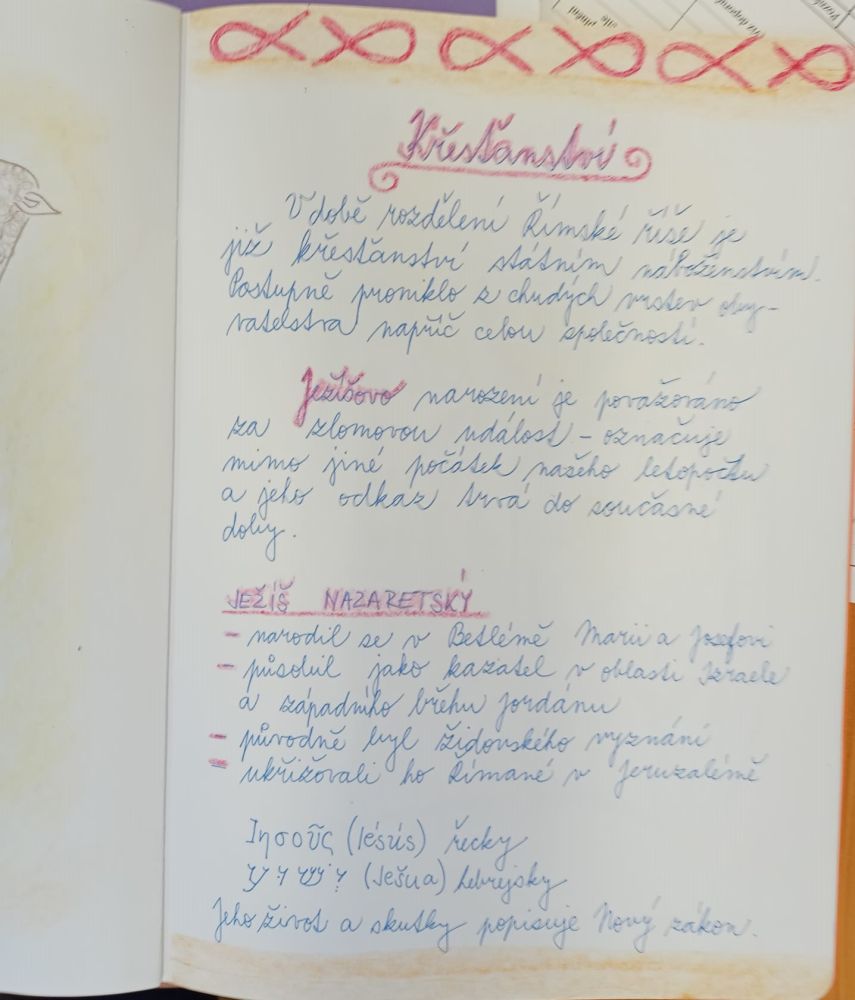 Křesťanství
V době rozdělení Římské říše je
již křesťanství státním náboženstvím.
Postupně proniklo z chudých vrstev oby-
vatelstva napříč celou společností.
Ježíšovo narození je považováno
za zlomovou událost - označuje
mimo jiné počátek našeho letopočtu
a jeho odkaz trvá do současné
doby.
JEŽÍŠ NAZARETSKÝ
- narodil se v Betlémě Marii a Josefovi
- působil jako kazatel v oblasti Izraele
a západního břehu Jordánu
- původně byl židovského vyznání
- ukřižovali ho Římané v Jeruzalémě
Ἰησοῦς (Iésús) řecky
(Ješua) hebrejsky
Jeho život a skutky popisuje Nový zákon.